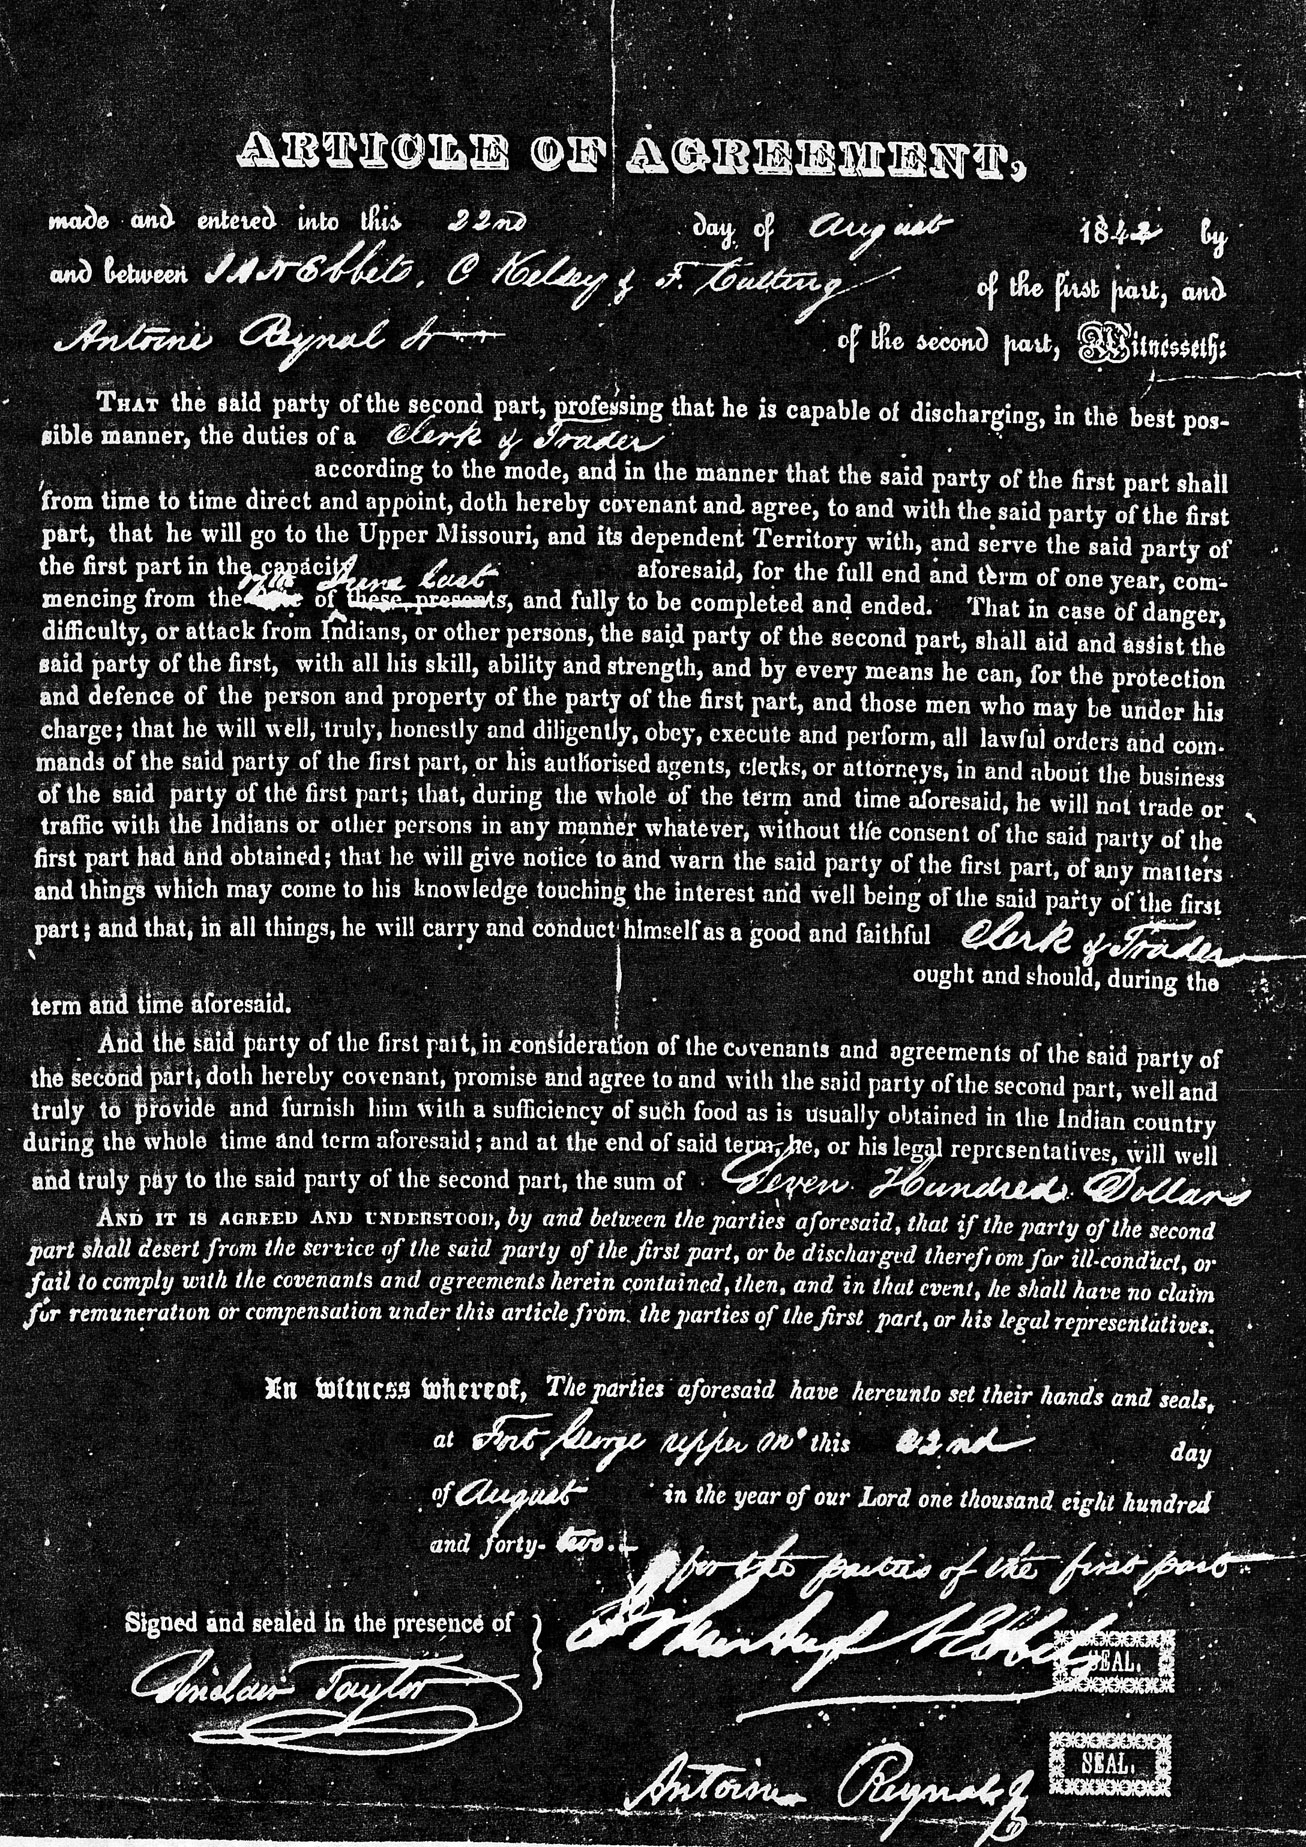 ARTICLE OF AGREEMENT,
made and entered into this 22nd day of August 1842 by
and between J A N Ebbets, C Kelsey & F. Cutting of the first part, and
Antoine Reynal Jr of the second part, Witnesseth:
THAT the said party of the second part, professing that he is capable of discharging, in the best pos-
sible manner, the duties of a Clerk & Trader
according to the mode, and in the manner that the said party of the first part shall
from time to time direct and appoint, doth hereby covenant and agree, to and with the said party of the first
part, that he will go to the Upper Missouri, and its dependent Territory with, and serve the said party of
the first part in the capacity aforesaid, for the full end and term of one year, com-
17th June last
mencing from the of these presents, and fully to be completed and ended. That in case of danger,
difficulty, or attack from Indians, or other persons, the said party of the second part, shall aid and assist the
said party of the first, with all his skill, ability and strength, and by every means he can, for the protection
and defence of the person and property of the party of the first part, and those men who may be under his
charge; that he will well, truly, honestly and diligently, obey, execute and perform, all lawful orders and com-
mands of the said party of the first part, or his authorised agents, clerks, or attorneys, in and about the business
of the said party of the first part; that, during the whole of the term and time aforesaid, he will not trade or
traffic with the Indians or other persons in any manner whatever, without the consent of the said party of the
first part had and obtained; that he will give notice to and warn the said party of the first part, of any matters
and things which may come to his knowledge touching the interest and well being of the said party of the first
part; and that, in all things, he will carry and conduct himself as a good and faithful Clerk & Trader
ought and should, during the
term and time aforesaid.
And the said party of the first part, in consideration of the covenants and agreements of the said party of
the second part, doth hereby covenant, promise and agree to and with the said party of the second part, well and
truly to provide and furnish him with a sufficiency of such food as is usually obtained in the Indian country
during the whole time and term aforesaid; and at the end of said term, he, or his legal representatives, will well
and truly pay to the said party of the second part, the sum of Seven Hundred Dollars
AND IT IS AGREED AND UNDERSTOOD, by and between the parties aforesaid, that if the party of the second
part shall desert from the service of the said party of the first part, or be discharged therefrom for ill-conduct, or
fail to comply with the covenants and agreements herein contained, then, and in that event, he shall have no claim
for remuneration or compensation under this article from the parties of the first part, or his legal representatives.
In witness whereof, The parties aforesaid have hereunto set their hands and seals,
at Fort George upper Mo this 22nd day
of August in the year of our Lord one thousand eight hundred
and forty-two.
for the parties of the first part
Signed and sealed in the presence of
John Aug N Ebbets SEAL.
Sinclair Taylor
Antoine Reynal Jr SEAL.